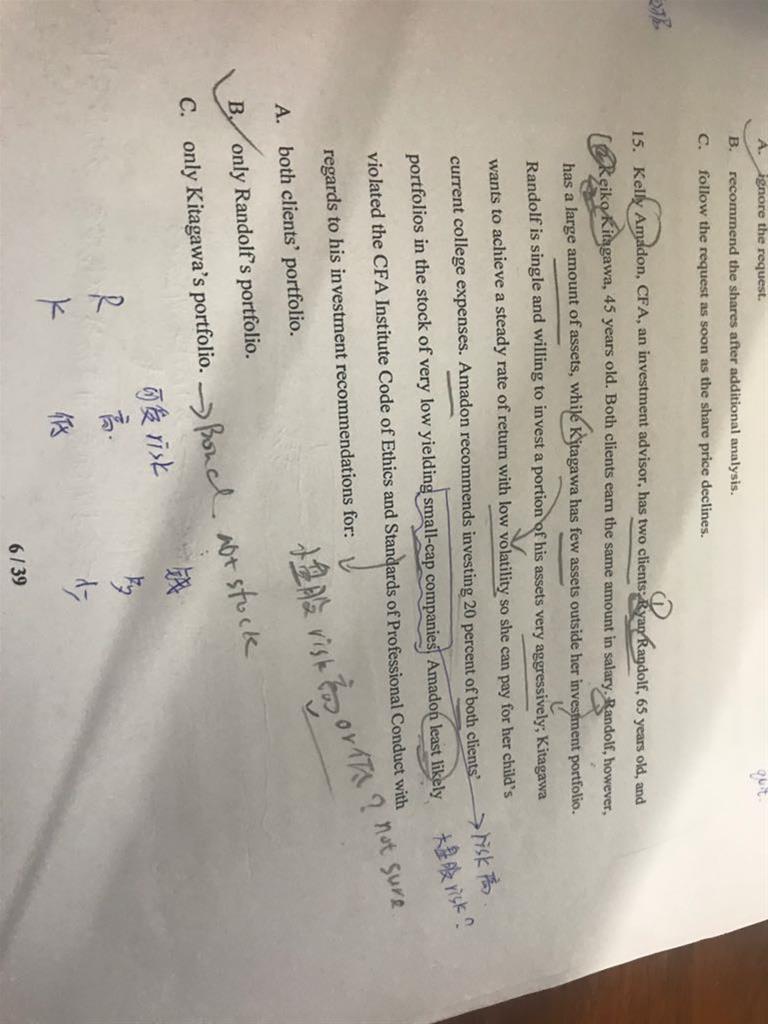 A. ignore the request.
B. recommend the shares after additional analysis.
C. follow the request as soon as the share price declines.
15. Kelly Amadon, CFA, an investment advisor, has two clients: Ryan Randolf, 65 years old, and
Keiko Kitagawa, 45 years old. Both clients earn the same amount in salary. Randolf, however,
has a large amount of assets, while Kitagawa has few assets outside her investment portfolio.
Randolf is single and willing to invest a portion of his assets very aggressively; Kitagawa
wants to achieve a steady rate of return with low volatility so she can pay for her child's
current college expenses. Amadon recommends investing 20 percent of both clients'
portfolios in the stock of very low yielding small-cap companies. Amadon least likely
violated the CFA Institute Code of Ethics and Standards of Professional Conduct with
regards to his investment recommendations for:
→ risk 高.
大盘股 risk?
大盘股 risk 高 or 低? not sure
A. both clients' portfolio.
B. only Randolf's portfolio.
C. only Kitagawa's portfolio. → Bond. Not stock
risk 钱
R 高. 多
K 低 少
6 / 39